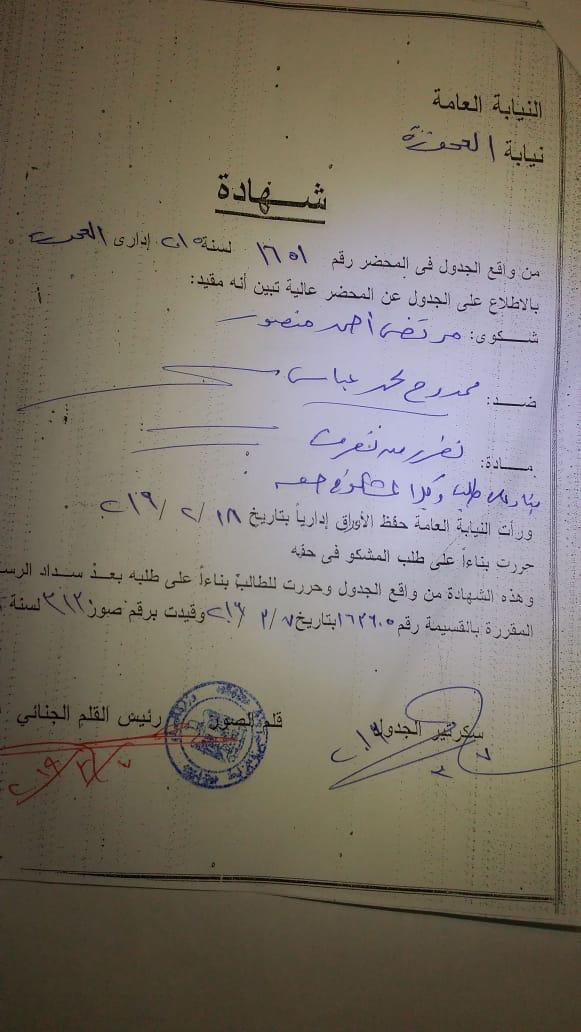 النيابة العامة
نيابة العجوزة
شهادة
من واقع الجدول فى المحضر رقم ١٦٥١ لسنة إدارى
بالاطلاع على الجدول عن المحضر عالية تبين أنه مقيد:
شكوى: مرتضى أحمد منصور
ضد: ممدوح محمد عباس
مادة: تضرر من
بناء على طلب وكيل المشكو فى حقه
ورأت النيابة العامة حفظ الأوراق إدارياً بتاريخ ١٨/ ٢/
حررت بناءاً على طلب المشكو فى حقه
وهذه الشهادة من واقع الجدول وحررت للطالب بناءاً على طلبه بعد سداد الرس
المقررة بالقسيمة رقم بتاريخ ٧/ ٣/ وقيدت برقم صور ٣١٢ لسنة
سكرتير الجدول قلم الصور رئيس القلم الجنائي